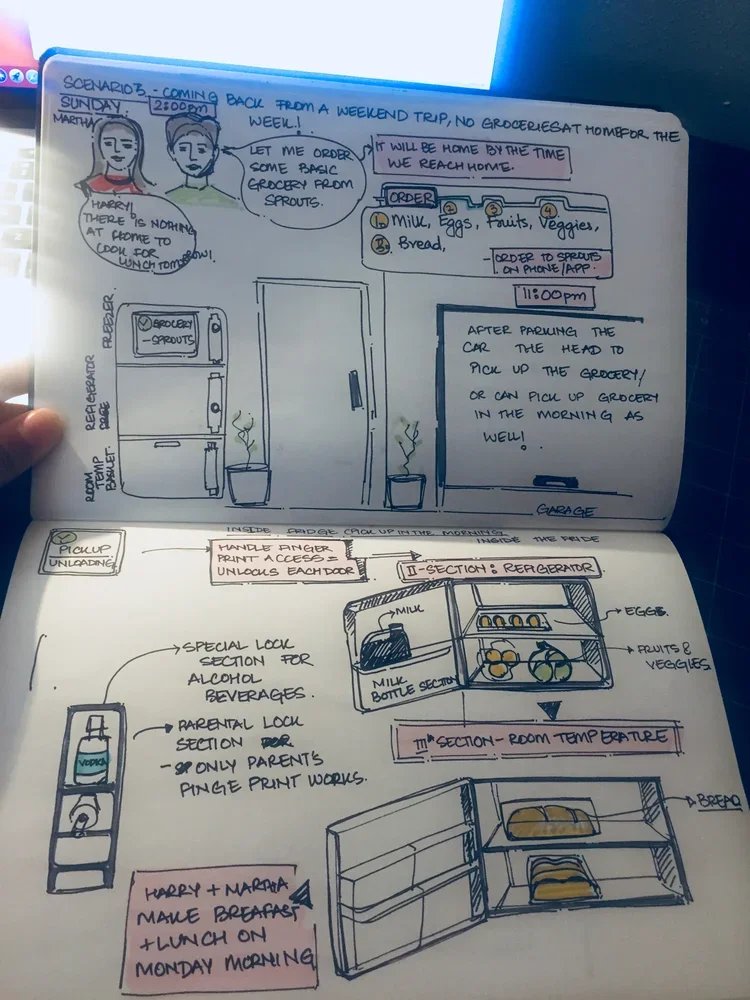 SCENARIO 3 - COMING BACK FROM A WEEKEND TRIP, NO GROCERIES AT HOME FOR THE
WEEK!
SUNDAY 2:00pm
MARTHA
HARRY!
THERE IS NOTHING
AT HOME TO
COOK FOR
LUNCH TOMORROW!
LET ME ORDER
SOME BASIC
GROCERY FROM
SPROUTS.
IT WILL BE HOME BY THE TIME
WE REACH HOME.
ORDER
1. Milk, 2 Eggs, 3 Fruits, 4 Veggies,
Bread,
- ORDER TO SPROUTS
ON PHONE/APP.
11:00pm
FREEZER
REFIGERATOR
ROOM
TEMP
BASKET
GROCERY
- SPROUTS
AFTER PARKING THE
CAR THE HEAD TO
PICK UP THE GROCERY/
OR CAN PICK UP GROCERY
IN THE MORNING AS
WELL!
GARAGE
INSIDE FRIDGE (PICK UP IN THE MORNING
INSIDE THE FRIDE
PICKUP
UNLOADING
HANDLE FINGER
PRINT ACCESS =
UNLOCKS EACH DOOR
II - SECTION: REFIGERATOR
MILK
MILK
BOTTLE SECTION
EGGS.
FRUITS &
VEGGIES
SPECIAL LOCK
SECTION FOR
ALCOHOL
BEVERAGES.
PARENTAL LOCK
SECTION FOR
- ONLY PARENT'S
FINGE PRINT WORKS.
VODKA
III SECTION - ROOM TEMPERATURE
BREAD
HARRY + MARTHA
MAKE BREAFAST
+ LUNCH ON
MONDAY MORNING